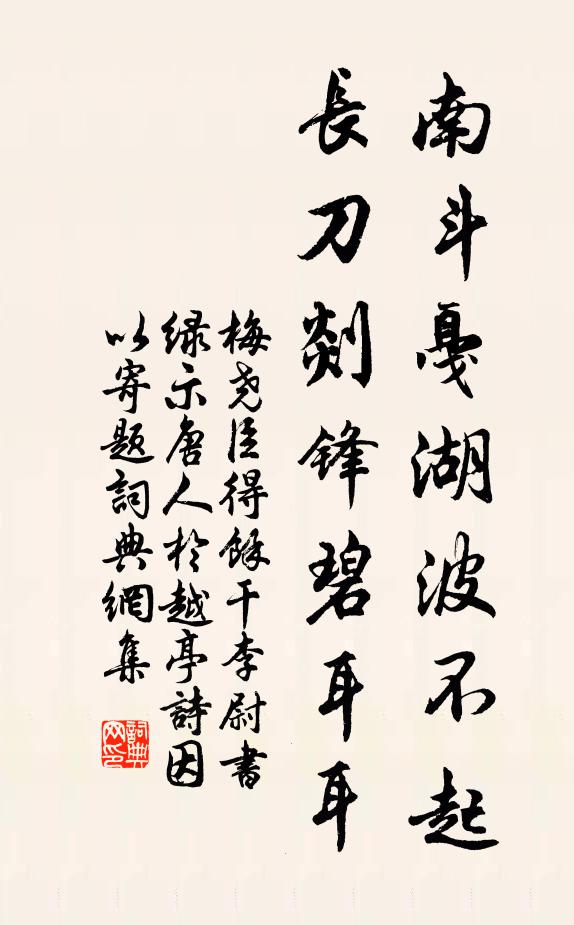 南斗戛湖波不起
長刀剡锋碧耳耳
梅尧臣得馀干李尉書
绿示唐人於越亭詩因
以寄题詞典網集
詞典网印